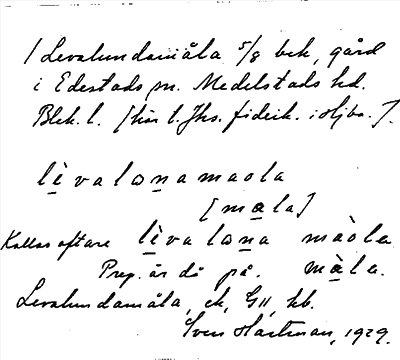 / Levalundamåla 5/8 bek, gård
i Edestads sn. Medelstads hd.
Blek. l. [här t. Jhs. fideik. i Hjbo.].
lèvalonamaola
[mala]
Kallas oftare lèva lona màola
Prep. är då på. màla.
Levalundamåla, ek, G11, kb.
Sven Hartman, 1929.